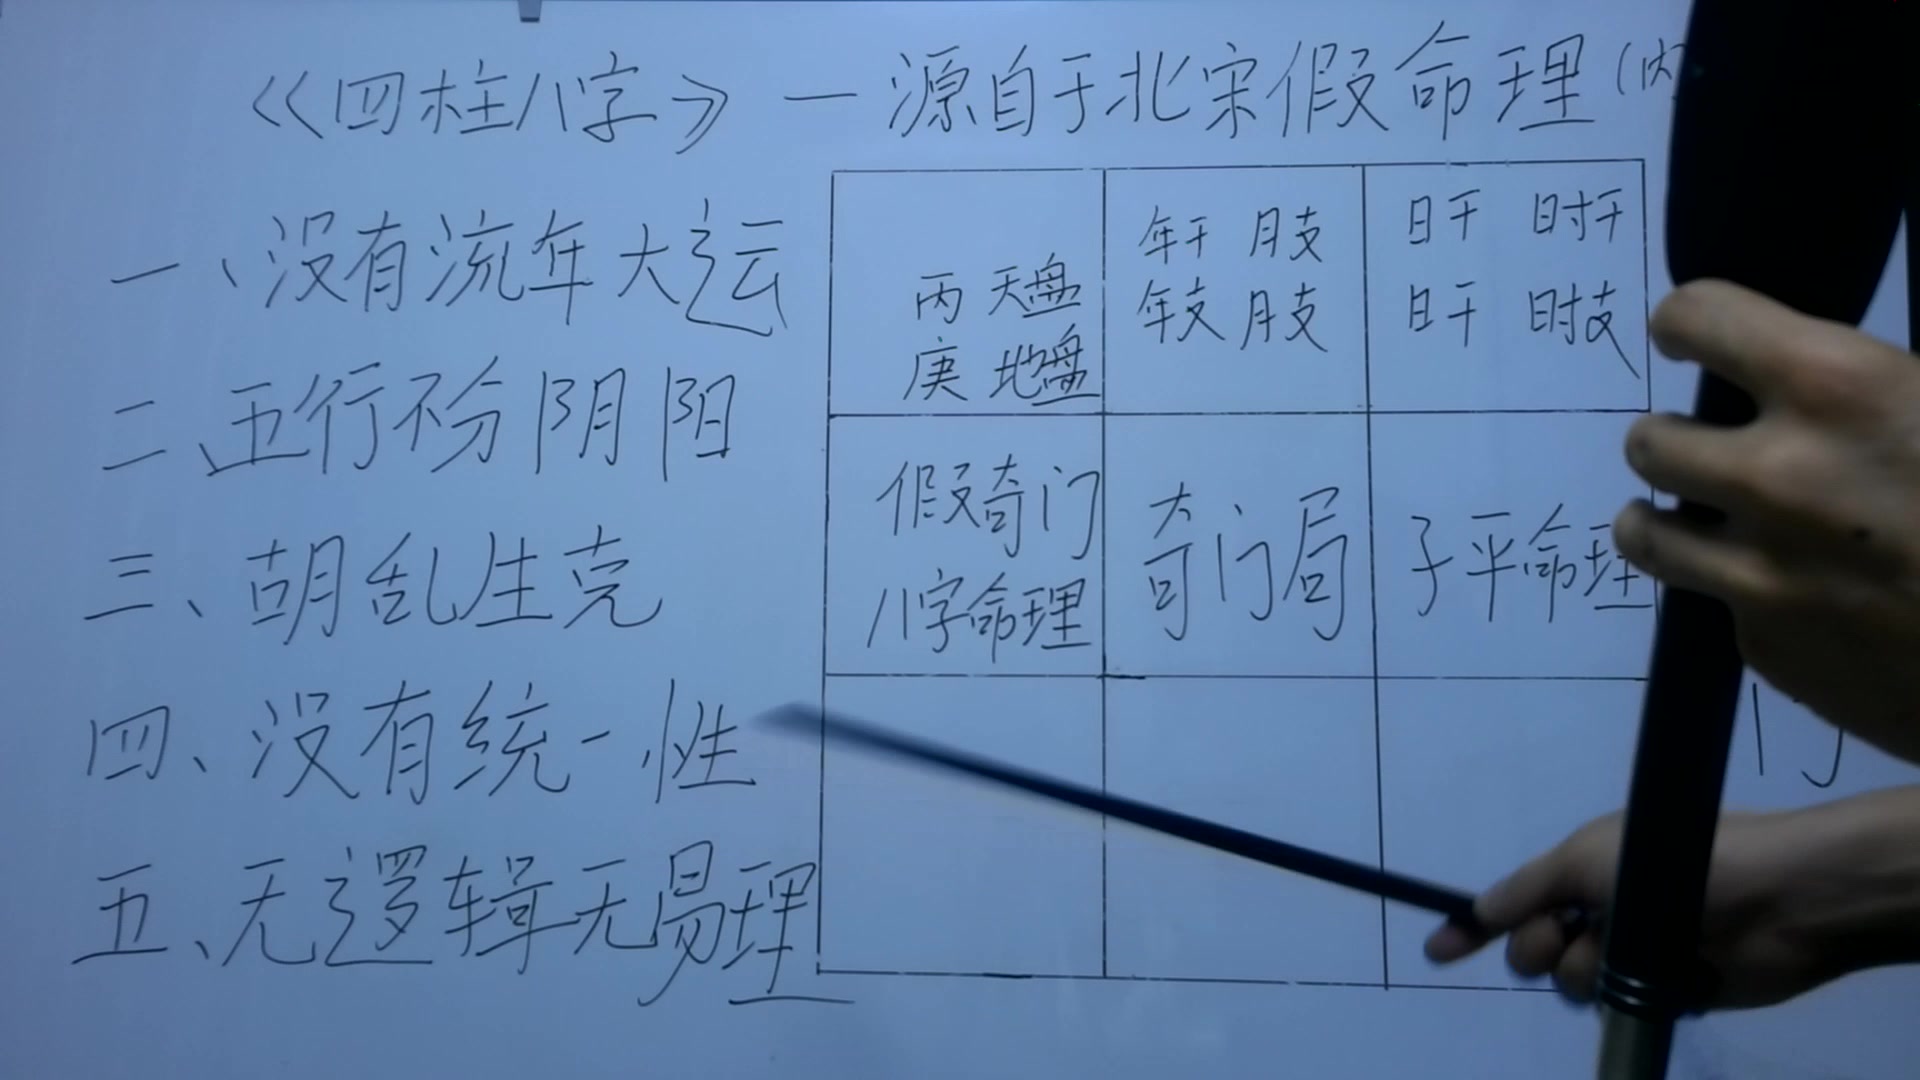 《四柱八字》—源自于北宋假命理(内
一、没有流年大运
二、五行不分阴阳
三、胡乱生克
四、没有统一性
五、无逻辑无易理
丙 天盘
庚 地盘
年干 月支
年支 月支
日干 时干
日干 时支
假奇门
八字命理
奇门局
子平命理
门